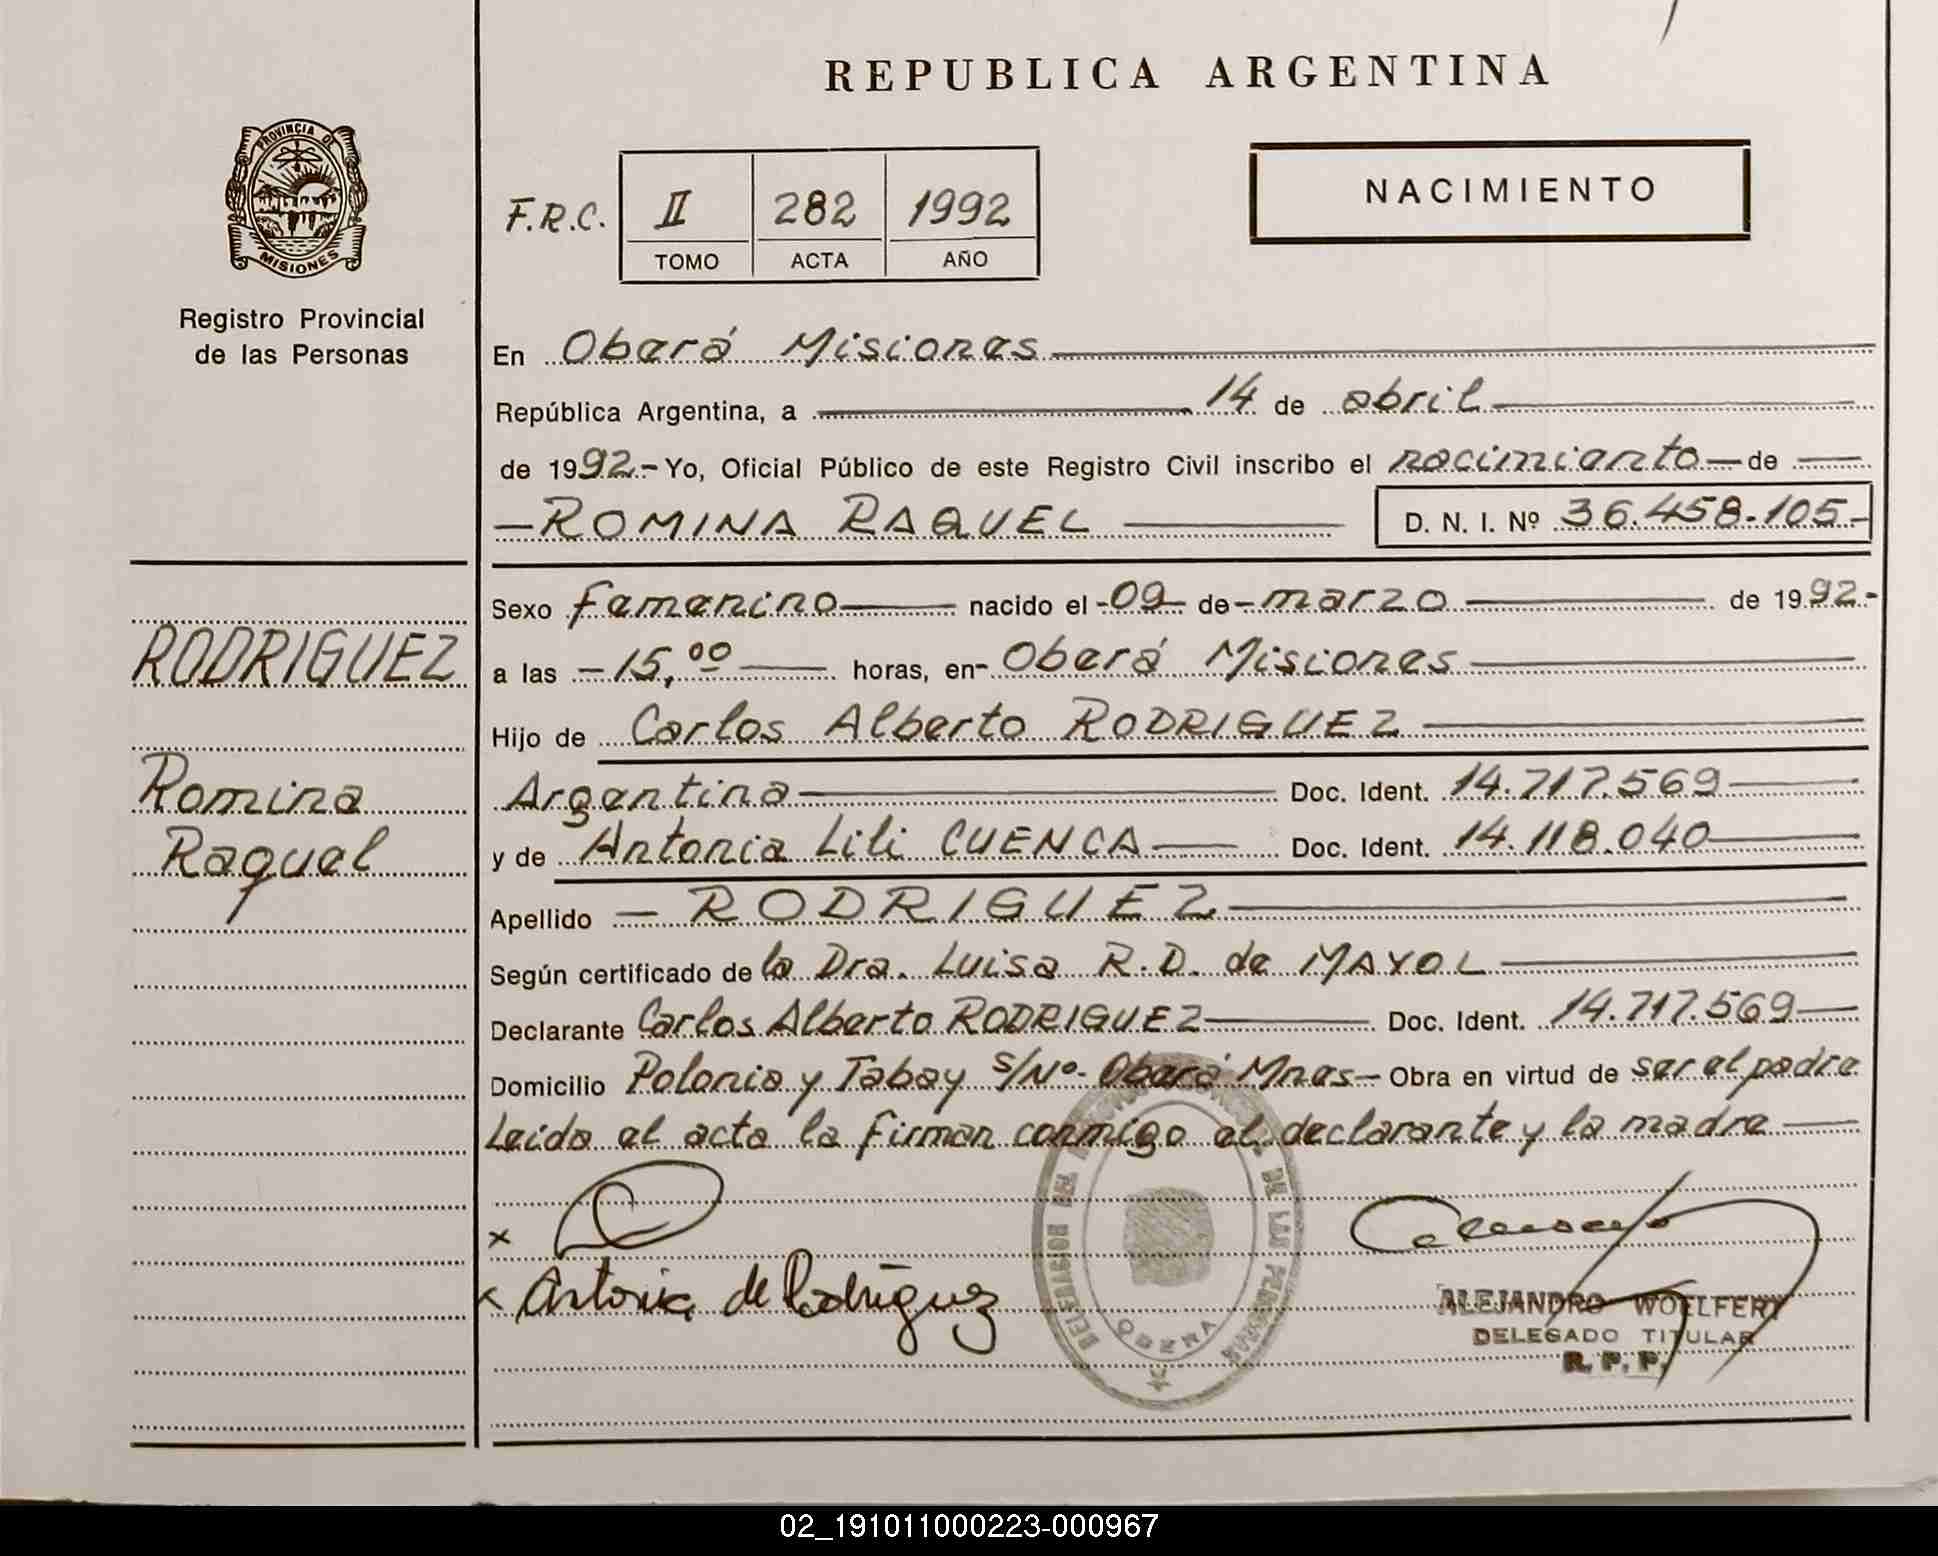 REPUBLICA ARGENTINA
PROVINCIA DE
MISIONES
Registro Provincial
de las Personas
F.R.C. II 282 1992
TOMO ACTA AÑO
NACIMIENTO
En Oberá Misiones
República Argentina, a 14 de abril
de 1992.- Yo, Oficial Público de este Registro Civil inscribo el nacimiento de
ROMINA RAQUEL D. N. I. Nº 36.458.105-
RODRIGUEZ
Romina
Raquel
Sexo femenino nacido el 09 de marzo de 1992-
a las 15,00 horas, en Oberá Misiones
Hijo de Carlos Alberto RODRIGUEZ
Argentina Doc. Ident. 14.717.569
y de Antonia Lili CUENCA Doc. Ident. 14.118.040
Apellido RODRIGUEZ
Según certificado de la Dra. Luisa R.D. de MAYOL
Declarante Carlos Alberto RODRIGUEZ Doc. Ident. 14.717.569
Domicilio Polonia y Tabay s/Nº- Oberá Mnes- Obra en virtud de ser el padre
Leida el acta la firman conmigo el declarante y la madre
x
x Antonia de Rodríguez
DE LAS PERSONAS
OBERA
ALEJANDRO WOELFERT
DELEGADO TITULAR
R. P. P.
02_191011000223-000967